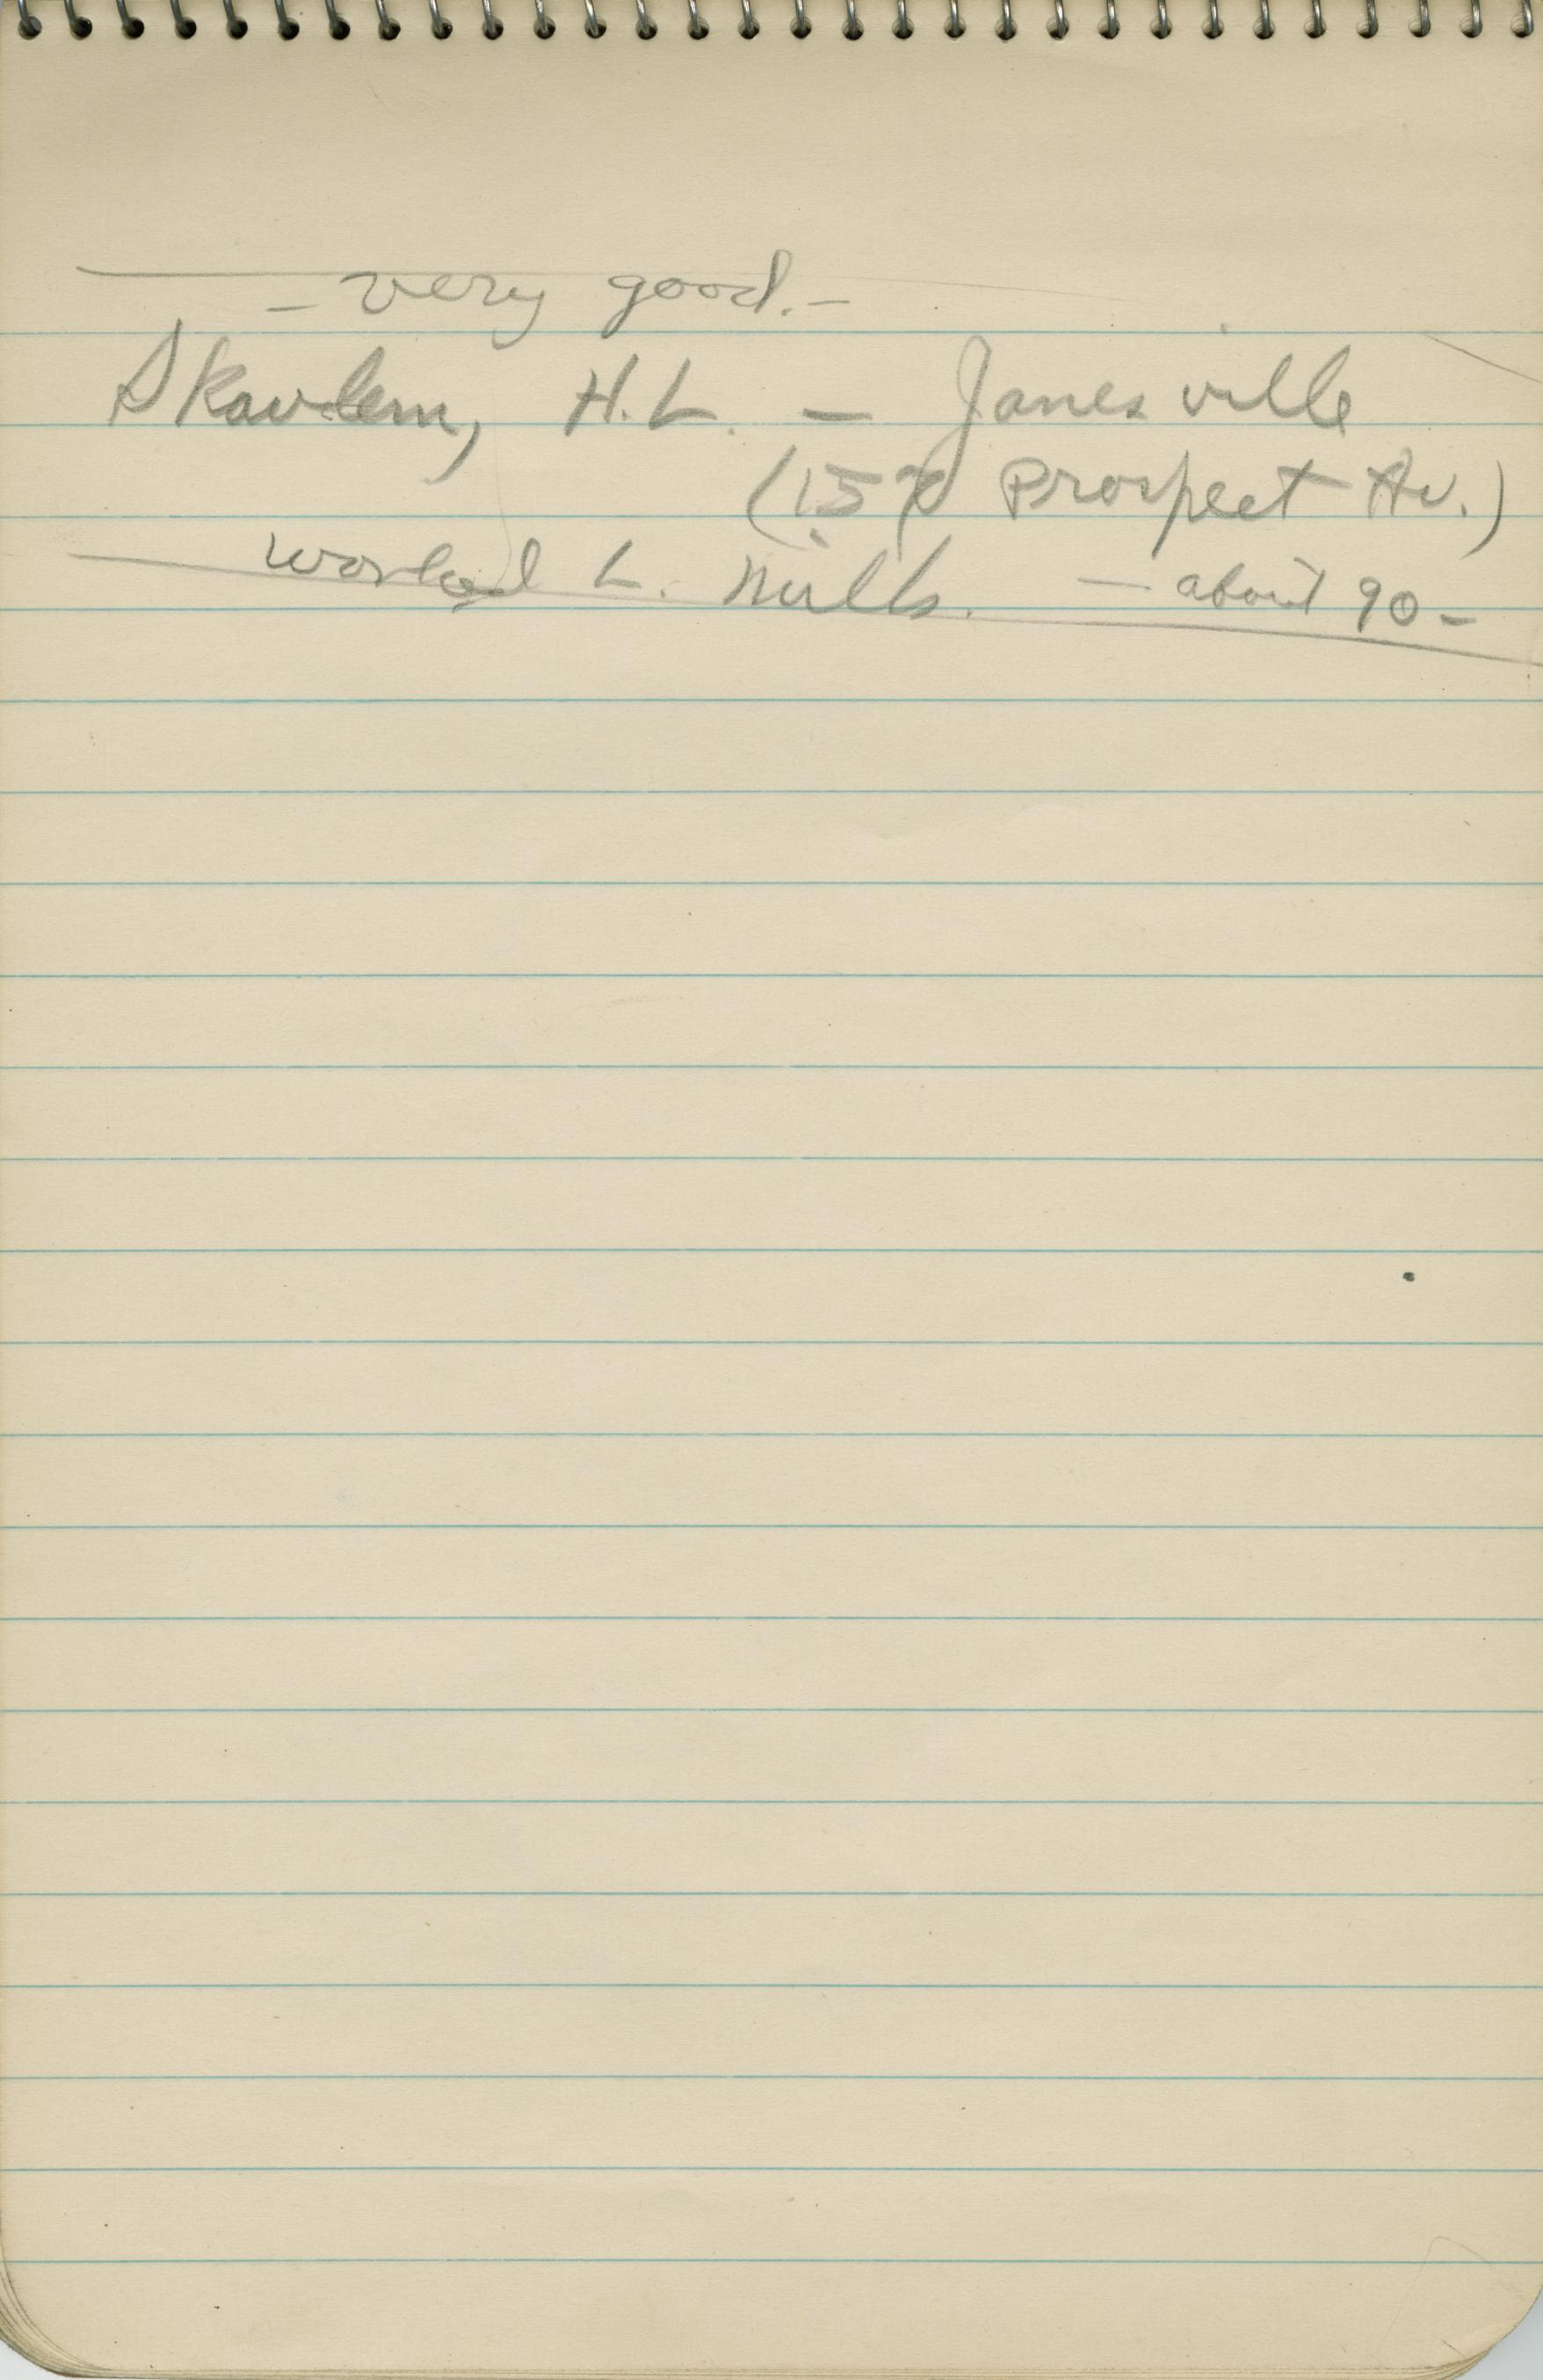 - very good. -
Skavlem, H.L. - Janesville
(15 Prospect Av.)
worked L. Mills. - about 90 -